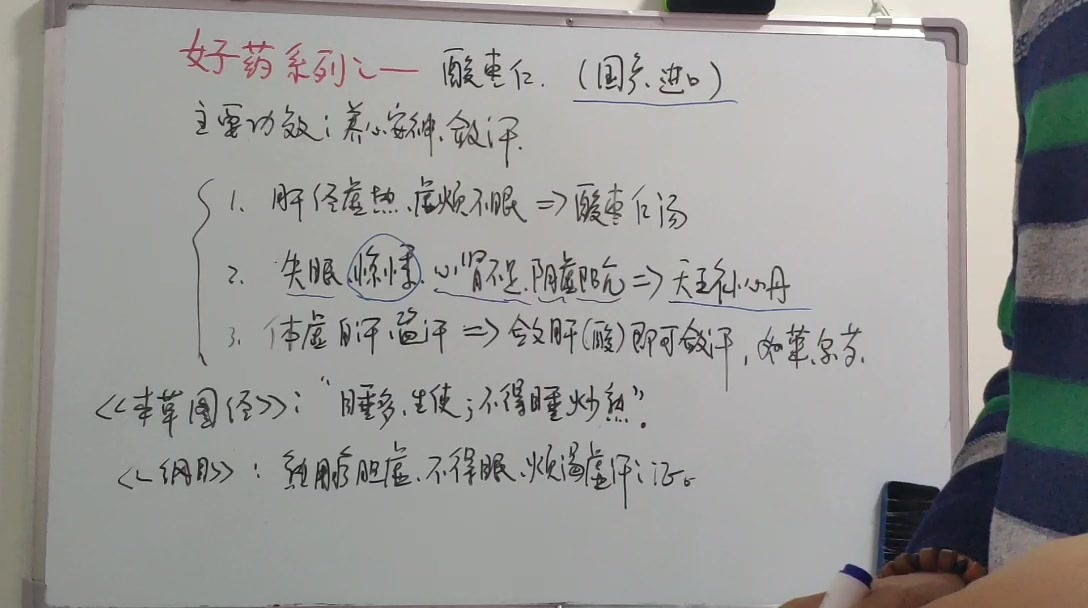 好药系列之一 酸枣仁.（国产、进口）
主要功效：养心安神、敛汗.
1. 肝经虚热、虚烦不眠 => 酸枣仁汤
2. 失眠惊悸、心肾不足、阴虚阳亢 => 天王补心丹
3. 体虚自汗、盗汗 => 敛肝(酸)即可敛汗，如萸、芍.
《本草图经》："睡多、生使；不得睡炒熟".
《纲目》：熟用疗胆虚、不得眠、烦渴虚汗之证。